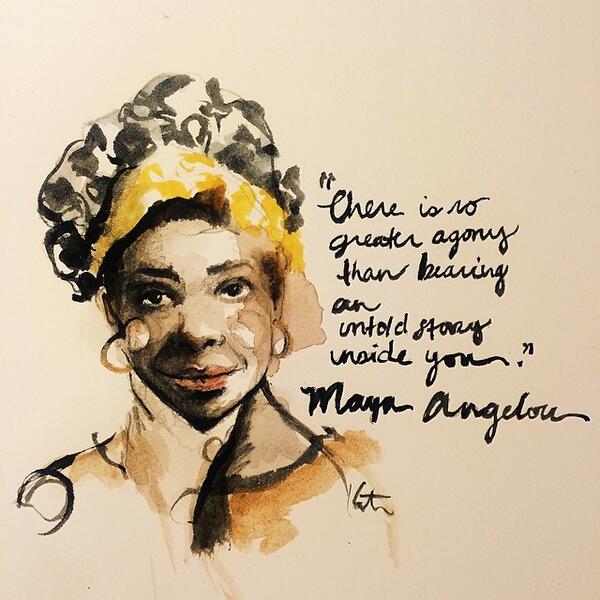 "There is no
greater agony
than bearing
an
untold story
inside you."
Maya Angelou